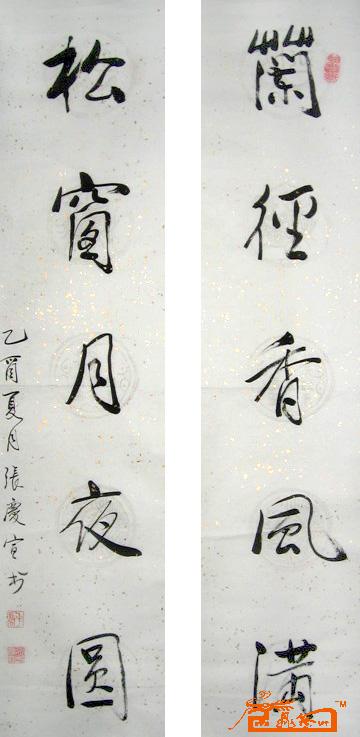 蘭徑香風滿
松窗月夜圓
乙酉夏月張慶宣书